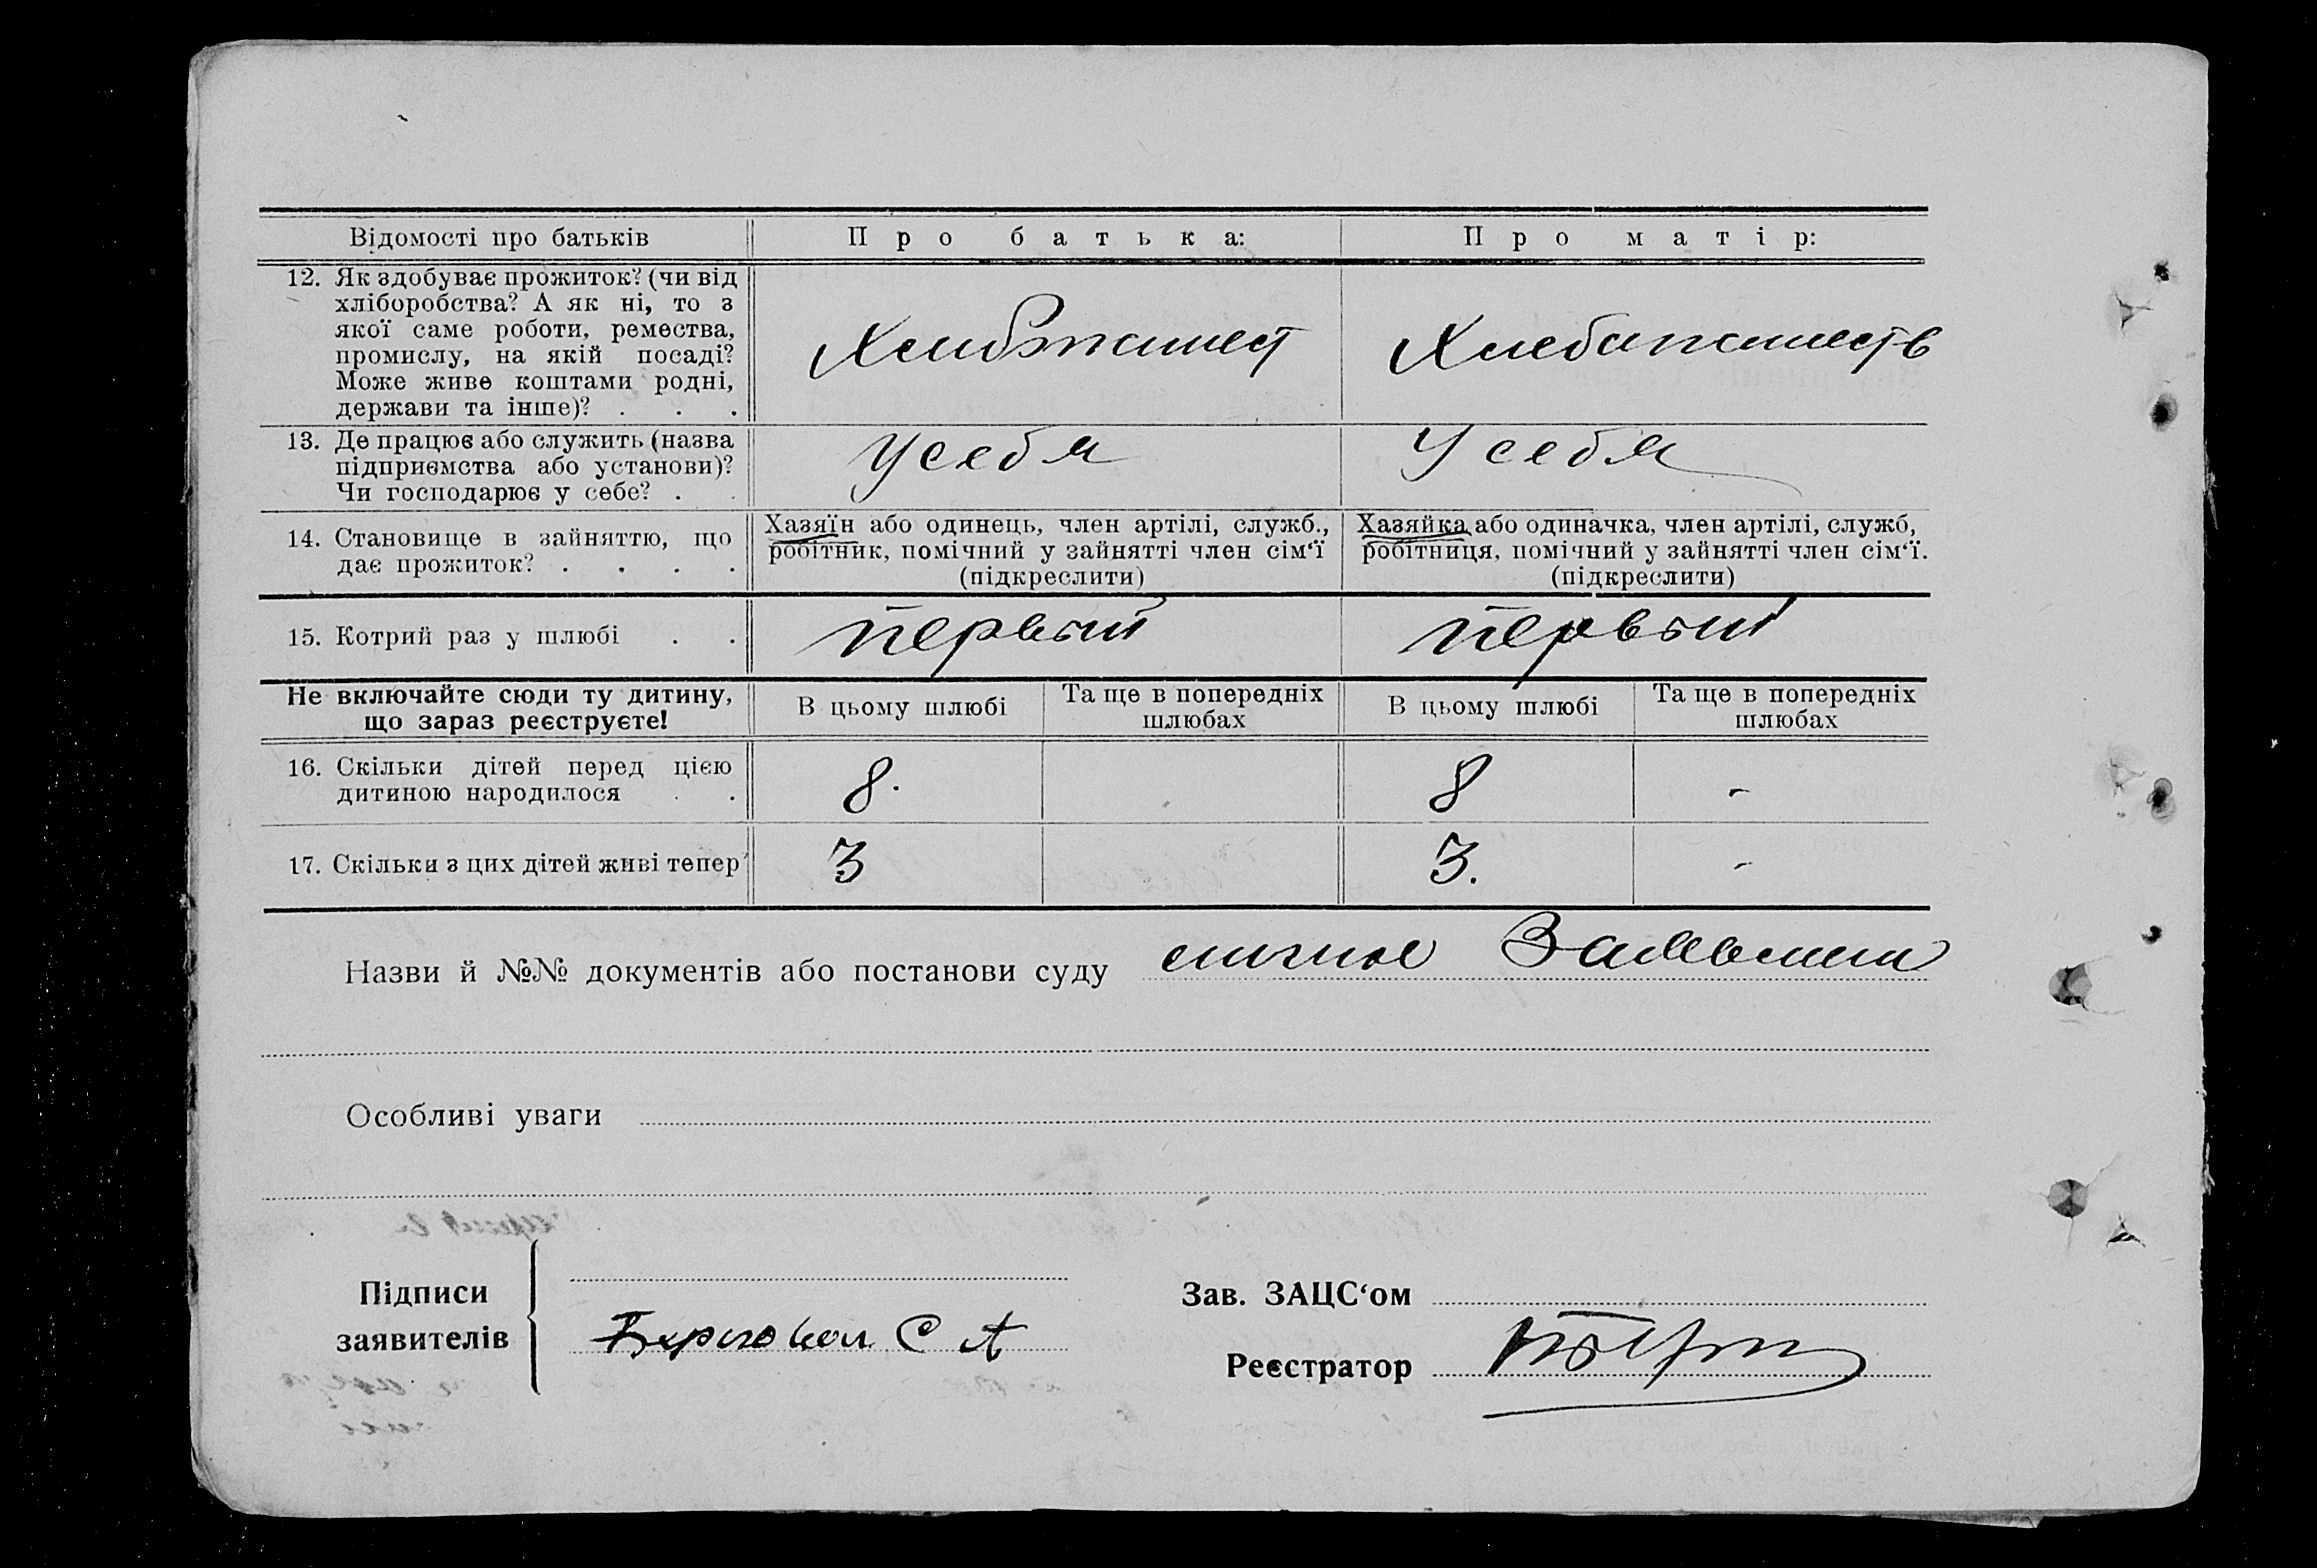 Відомості про батьків Про батька: Про матір:
12. Як здобуває прожиток? (чи від
хліборобства? А як ні, то з
якої саме роботи, ремества,
промислу, на якій посаді?
Може живе коштами родні,
держави та інше)? . . .
Хлибопашест Хлебапашеств
13. Де працює або служить (назва
підприємства або установи)?
Чи господарює у себе? .
У себя У себя
14. Становище в зайняттю, що
дає прожиток? . . . .
Хазяїн або одинець, член артілі, служб.,
робітник, помічний у зайнятті член сім'ї
(підкреслити)
Хазяйка або одиначка, член артілі, служб,
робітниця, помічний у зайнятті член сім'ї.
(підкреслити)
15. Котрий раз у шлюбі . . первый первый
Не включайте сюди ту дитину,
що зараз реєструєте!
В цьому шлюбі Та ще в попередніх
шлюбах
В цьому шлюбі Та ще в попередніх
шлюбах
16. Скільки дітей перед цією
дитиною народилося . .
8. 8 -
17. Скільки з цих дітей живі тепер 3 3. -
Назви й №№ документів або постанови суду
Особливі уваги
Підписи
заявителів
С А
Зав. ЗАЦС'ом
Реєстратор